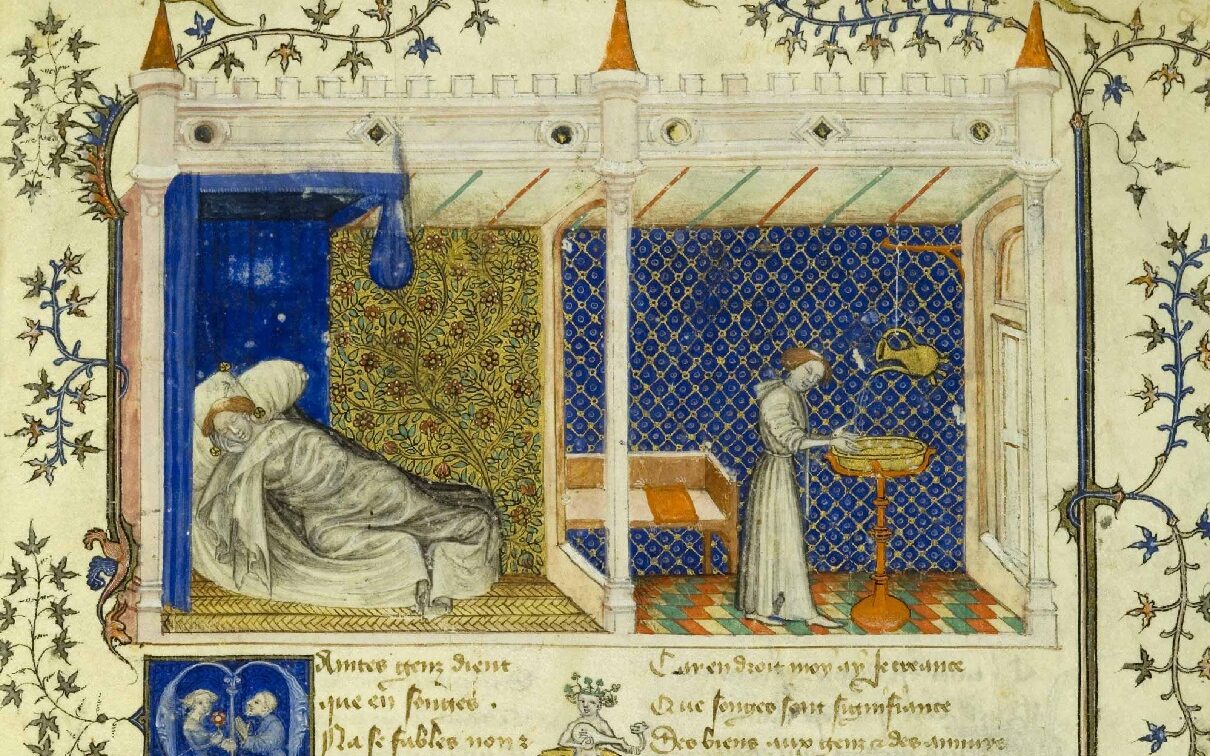 Maintes genz dient
que en songes .
Na se fables non &
Car endroit moy ay je creance
Que songes sont signifiance
Des biens aux genz & des annuys